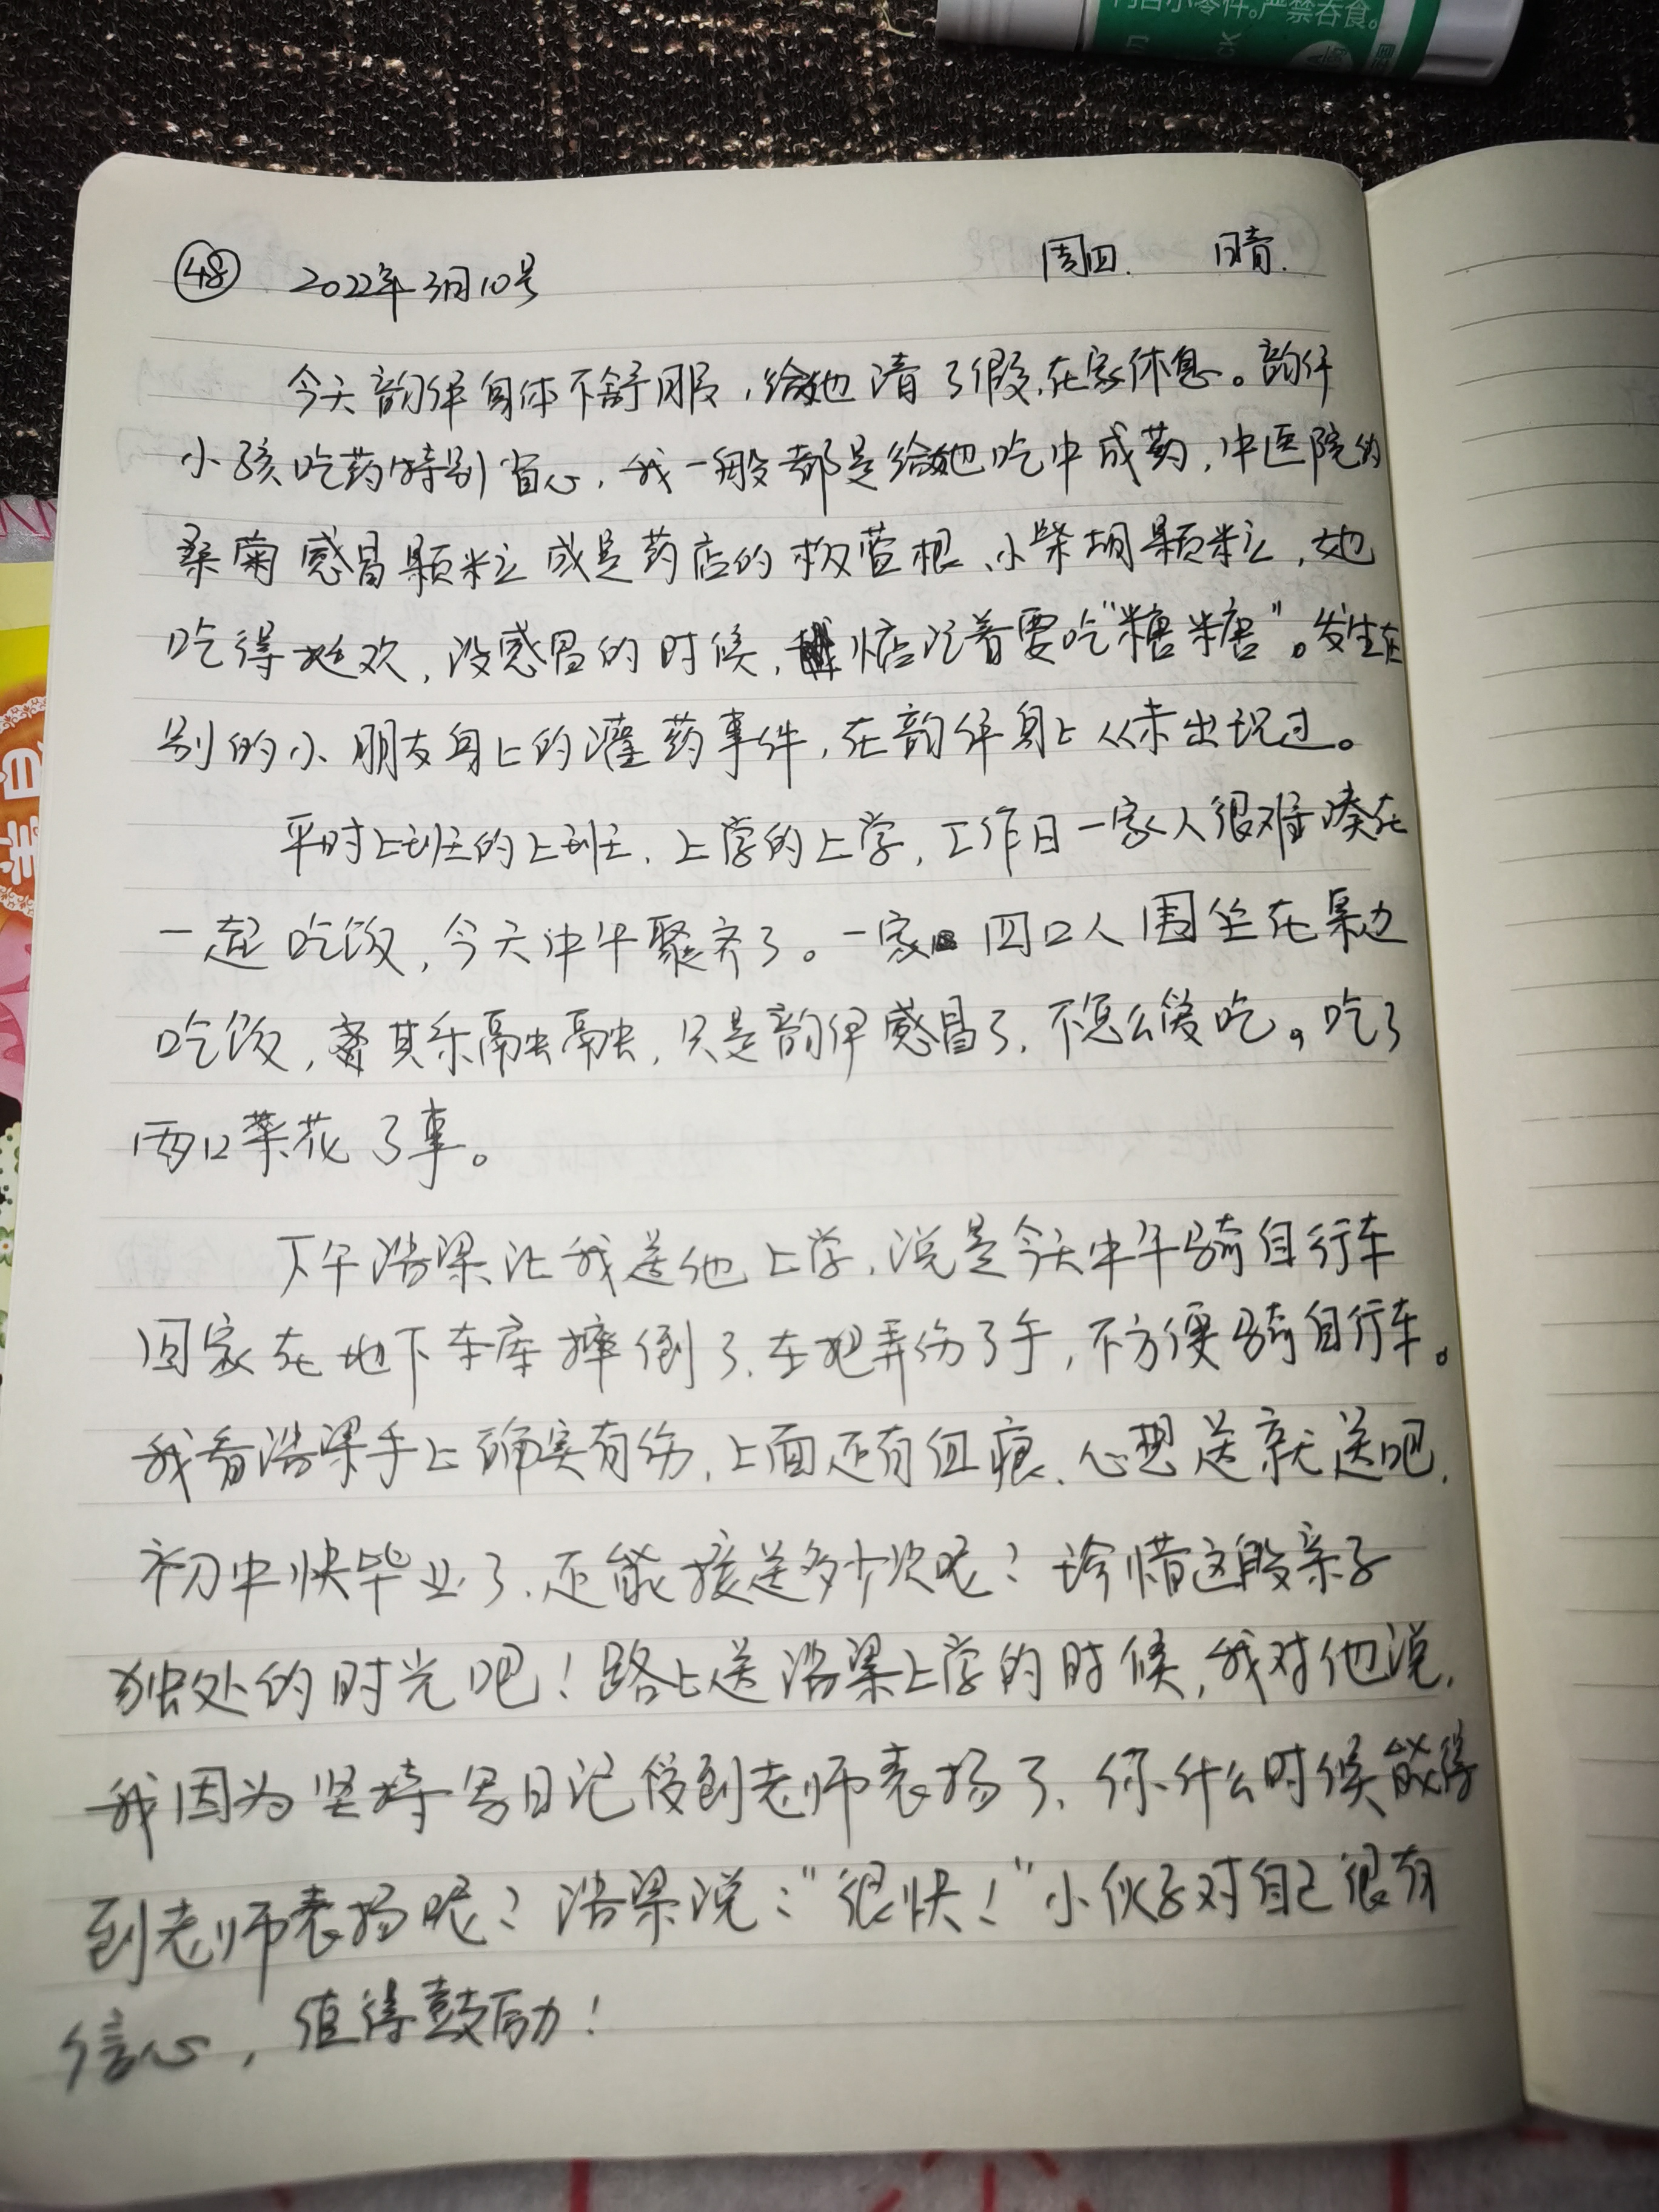 内含小零件。严禁吞食。
48 2022年3月10号 周四. 晴.
今天韵伴身体不舒服，给她请了假，在家休息。韵伴
小孩吃药特别省心，我一般都是给她吃中成药，中医院的
桑菊感冒颗粒或是药店的板蓝根、小柴胡颗粒，她
吃得挺欢，没感冒的时候，惦记着要吃“糖糖”。发生在
别的小朋友身上的灌药事件，在韵伴身上从未出现过。
平时上班的上班、上学的上学，工作日一家人很难凑在
一起吃饭，今天中午聚齐了。一家四口人围坐在桌边
吃饭，其乐融融，只是韵伴感冒了，不怎么爱吃。吃了
两口菜花了事。
下午浩梁让我送他上学，说是今天中午骑自行车
回家在地下车库摔倒了，车把弄伤了手，不方便骑自行车。
我看浩梁手上确实有伤，上面还有血痕、心想送就送吧，
初中快毕业了、还能接送多少次呢？珍惜这段亲子
独处的时光吧！路上送浩梁上学的时候，我对他说，
我因为坚持写日记受到老师表扬了、你什么时候能得
到老师表扬呢？浩梁说：“很快！”小伙子对自己很有
信心，值得鼓励！